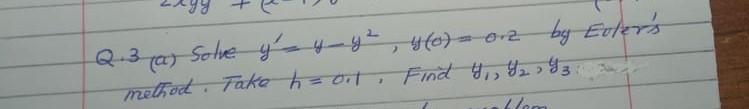 Q.3 (a) Solve y' = y - y², y(0) = 0.2 by Euler's
method. Take h = 0.1. Find y₁, y₂, y₃